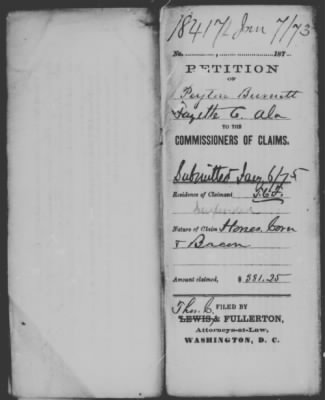 18417 Jan 7/73
No. 187
PETITION
OF
Peyton Burnett
Fayette C. Ala
TO THE
COMMISSIONERS OF CLAIMS.
Submitted Jany 6/75
Residence of Claimant
Nature of Claim Horses, Corn
& Bacon
Amount claimed, $ 581.25
FILED BY
Thos. C.
LEWIS & FULLERTON,
Attorneys-at-Law,
WASHINGTON, D. C.